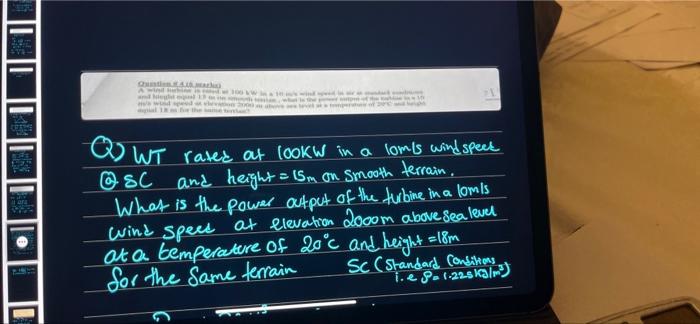 Question # 4 (6 marks)
A wind turbine is rated at 100 kW in a 10 m/s wind speed in air at standard conditions
and height equal 15 m on smooth terrain, what is the power output of the turbine in a 10
m/s wind speed at elevation 2000 m above sea level at a temperature of 20°C and height
equal 18 m for the same terrain?
Q) WT rated at 100KW in a 10m/s wind speed
@ SC and height = 15m on smooth terrain.
What is the power output of the turbine in a 10m/s
wind speed at elevation 2000m above sea level
at a temperature of 20°C and height = 18m
for the same terrain SC (Standard Conditions
i.e ρ = 1.225 Kg/m³)